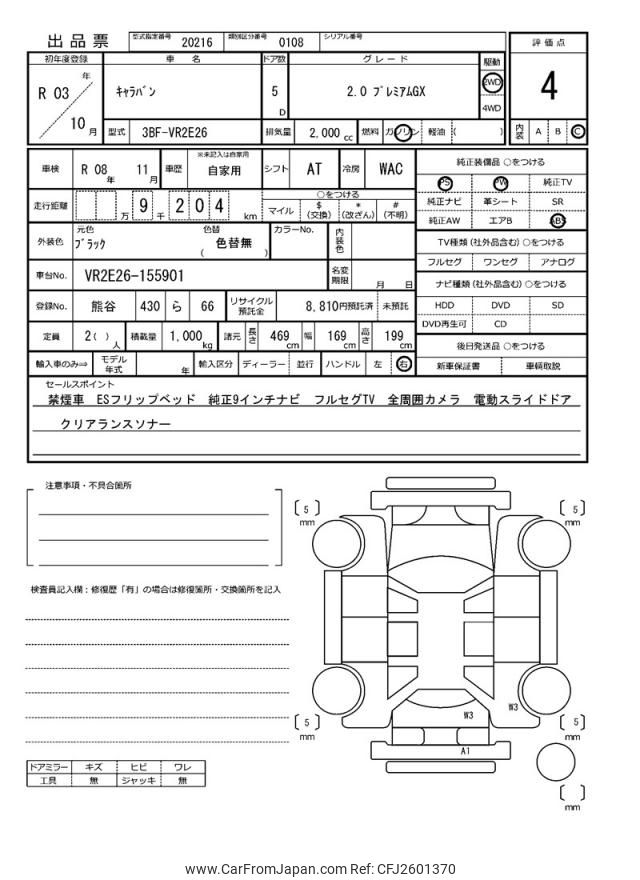 出品票
型式指定番号 20216 類別区分番号 0108 シリアル番号
評価点
4
内装 A B C
初年度登録 車名 ドア数 グレード 駆動
R 03 年 10 月
キャラバン
5 D
2.0 プレミアムGX
2WD
4WD
型式 3BF-VR2E26 排気量 2,000 cc 燃料 ガソリン 軽油 ( )
車検 R 08 年 11 月 車歴 ※未記入は自家用 自家用 シフト AT 冷房 WAC
走行距離 万 9 千 2 0 4 km
○をつける
マイル $(交換) *(改ざん) #(不明)
外装色 元色 ブラック 色替 ( 色替無 ) カラーNo. 内装色
車台No. VR2E26-155901 名変期限 月 日
登録No. 熊谷 430 ら 66 リサイクル預託金 8,810円預託済 未預託
定員 2( ) 人 積載量 1,000 kg 諸元 長さ 469 cm 幅 169 cm 高さ 199 cm
輸入車のみ⇒ モデル年式 年 輸入区分 ディーラー 並行 ハンドル 左 右
純正装備品 ○をつける
PS PW 純正TV
純正ナビ 革シート SR
純正AW エアB ABS
TV種類 (社外品含む) ○をつける
フルセグ ワンセグ アナログ
ナビ種類 (社外品含む) ○をつける
HDD DVD SD
DVD再生可 CD
後日発送品 ○をつける
新車保証書 車輌取説
セールスポイント
禁煙車 ESフリップベッド 純正9インチナビ フルセグTV 全周囲カメラ 電動スライドドア
クリアランスソナー
注意事項・不具合箇所
検査員記入欄：修復歴「有」の場合は修復箇所・交換箇所を記入
ドアミラー キズ ヒビ ワレ
工具 無 ジャッキ 無
〔 5 〕 mm
〔 5 〕 mm
〔 5 〕 mm
〔 5 〕 mm
〔 〕 mm
W3
W3
A1
www.CarFromJapan.com Ref: CFJ2601370